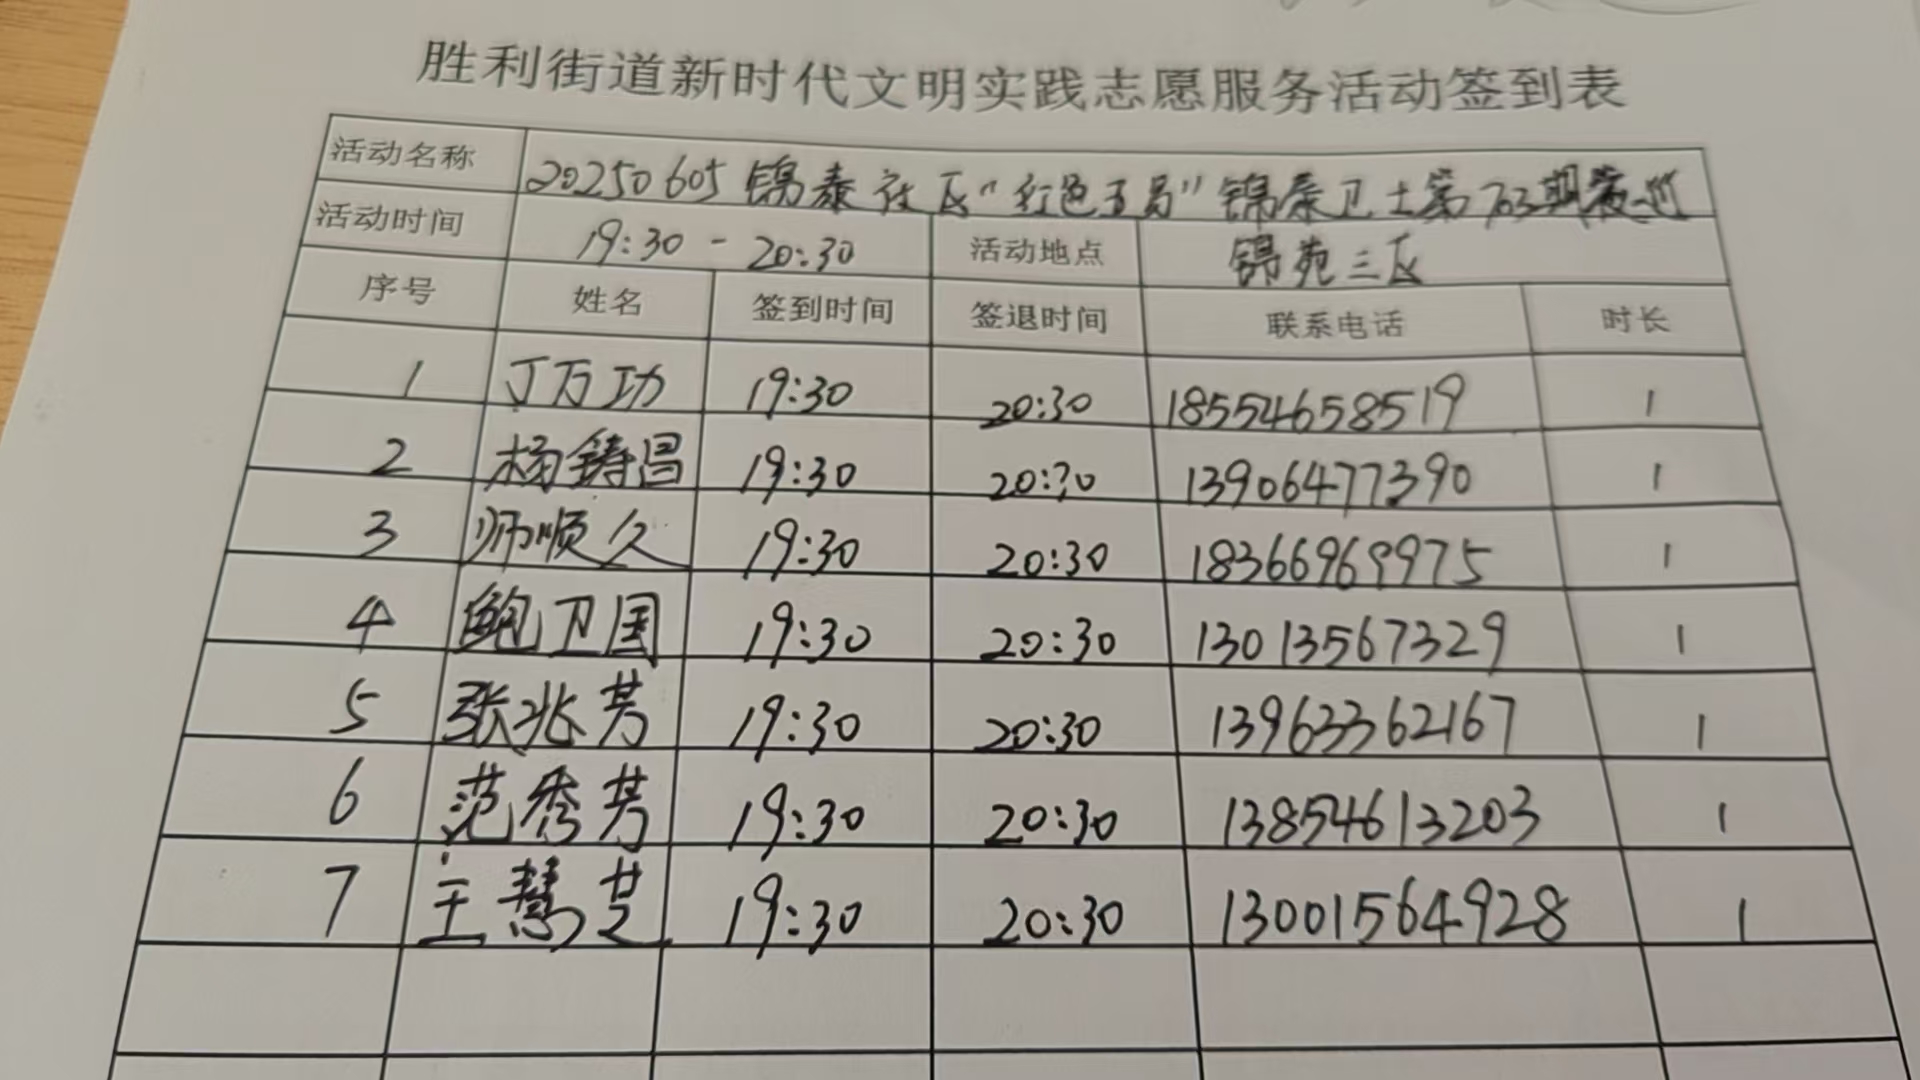 胜利街道新时代文明实践志愿服务活动签到表
活动名称 20250605锦泰社区“红色五员”锦泰卫士第703期夜巡
活动时间 19:30-20:30 活动地点 锦苑三区
序号 姓名 签到时间 签退时间 联系电话 时长
1 丁万功 19:30 20:30 18554658519 1
2 杨铸昌 19:30 20:30 13906477390 1
3 师顺久 19:30 20:30 18366969975 1
4 鲍卫国 19:30 20:30 13013567329 1
5 张兆芳 19:30 20:30 13963362167 1
6 范秀芳 19:30 20:30 13854613203 1
7 王慧芝 19:30 20:30 13001564928 1